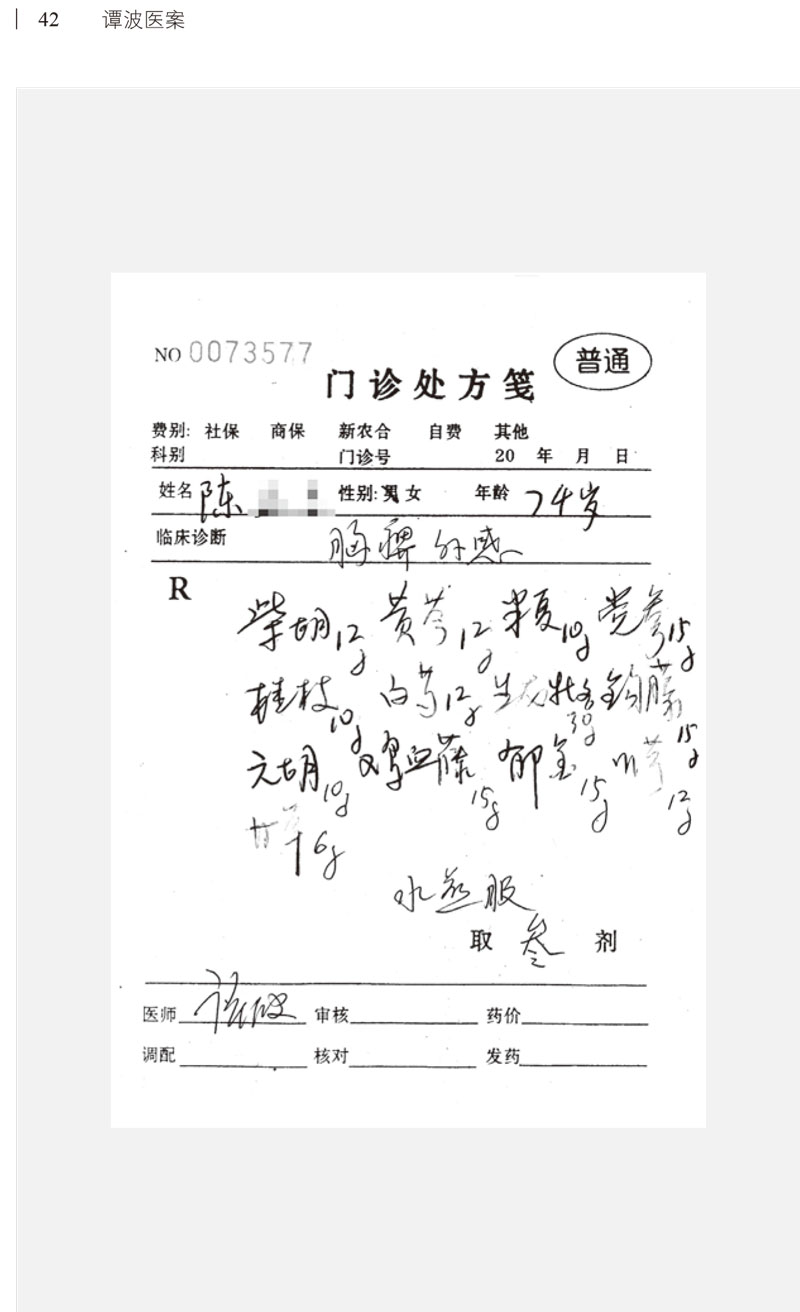 42 谭波医案
NO 0073577
普通
门诊处方笺
费别: 社保 商保 新农合 自费 其他
科别 门诊号 20 年 月 日
姓名 陈 性别:男 女 年龄 74岁
临床诊断 胸痹 外感
R
柴胡12g 黄芩12g 半夏10g 党参15g
桂枝10g 白芍12g 生龙牡各30g 钩藤15g
元胡10g 鸡血藤15g 郁金15g 川芎12g
甘草6g
水煎服
取 叁 剂
医师 谭波 审核 药价
调配 核对 发药